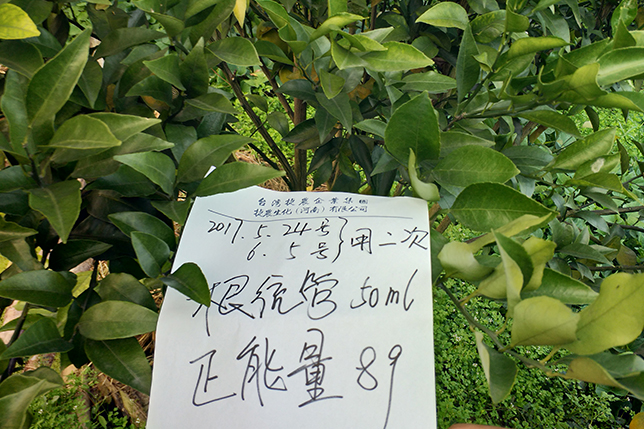 台湾捷农企业集团
捷农生化(河南)有限公司
2017.5.24号
6.5号}用二次
根统管50ml
正能量 89